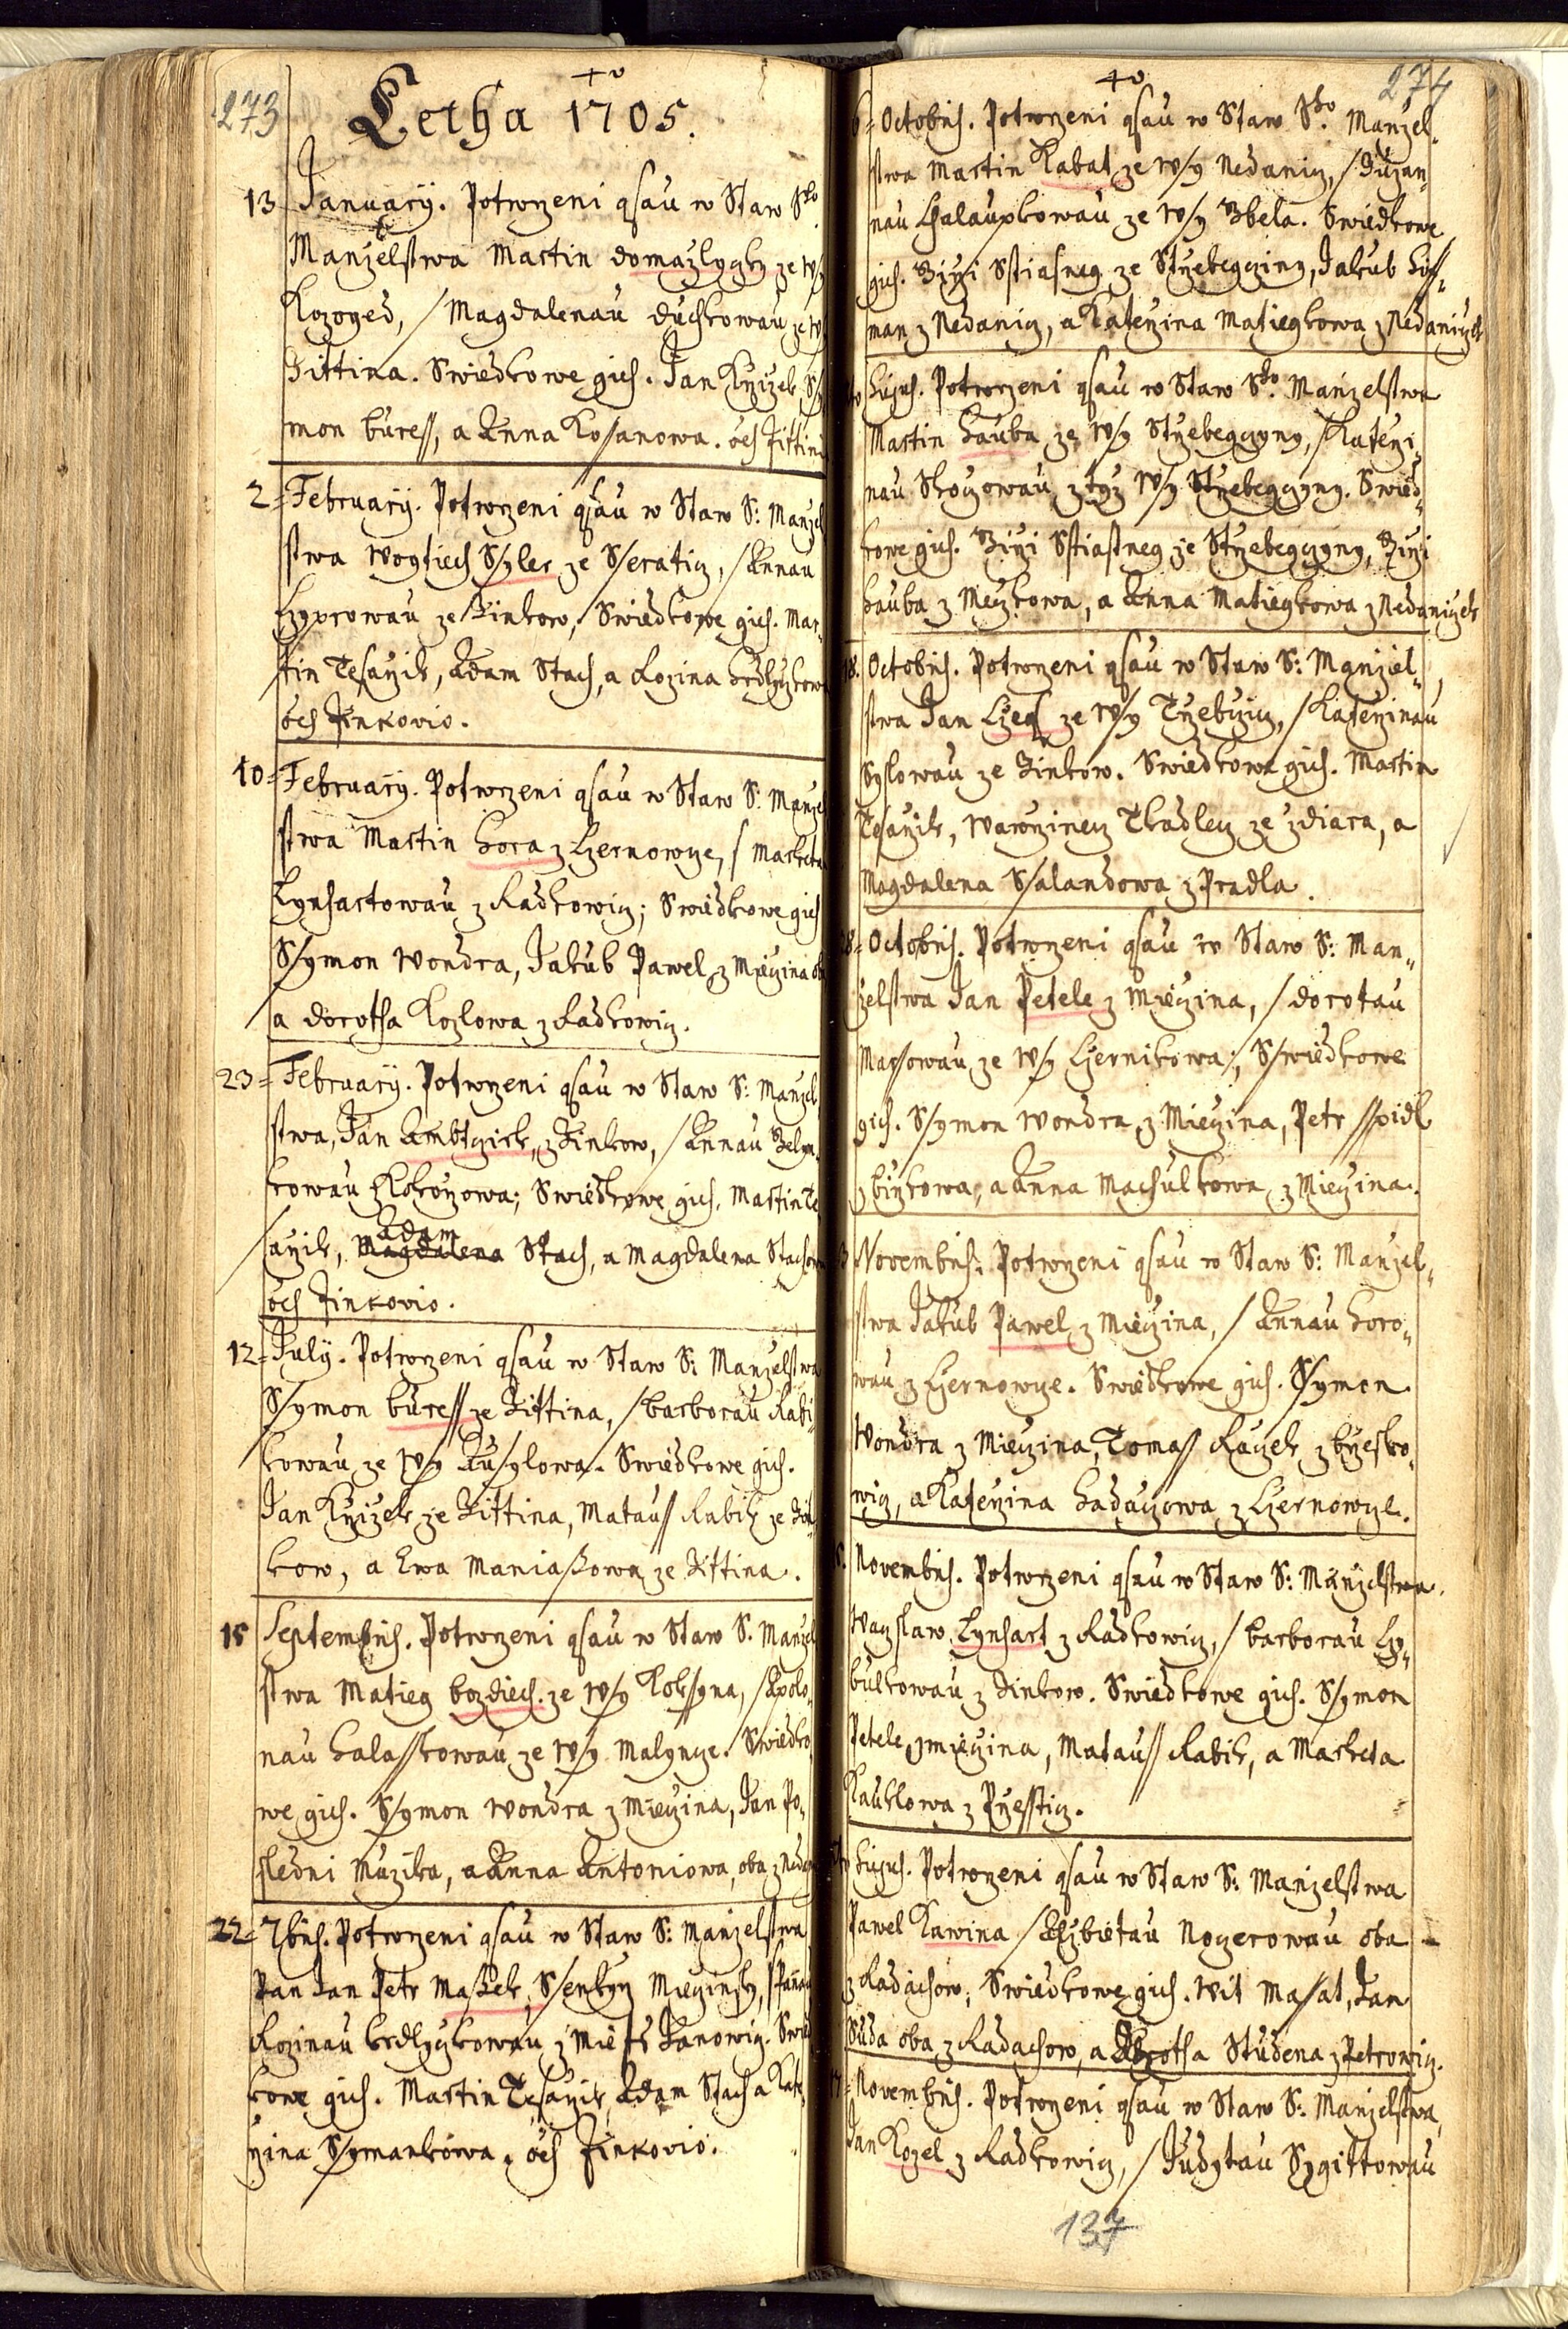 273
Letha 1705.
13 January. Potwrzeni gsau w Staw Sto
Manželstwa Martin domažlyczky ze w/y
Kozoged, / Magdalenau duchkowau ze w/y
Žittina. Swiedkowe gich. Jan Knižek, Sy
mon buress, a Anna Kossanowa. oes Žittin
2 = February. Potwrzeni gsau w Staw S: Manžel
stwa Wogtiech Syler ze Seratic, / Annau
Czyprowau ze Žinkow, Swiedkowe gich. Mar-
tin Tesařik, Adam Stach, a Rozina hrdlyczkowa
oes Žinkovio.
10 = February. Potwrzeni gsau w Staw S: Manžel
stwa Martin hora z Czernowcze, / Marketau
Lynhartowau z Radkowic; Swiedkowe gich
Symon Wondra, Jakub Pawel z Mieczina oba
a dorotha Kozlowa z Radkowic.
23 = February. Potwrzeni gsau w Staw S: Manžel
stwa, Jan Ambtzick, z Žinkow, / Annau
kowau z Kokořowa; Swiedkowe gich. Martin Te
sařik, Adam Magdalena Stach, a Magdalena Stachowa
oes Žinkovio.
12 = July. Potwrzeni gsau w Staw S: Manželstwa
Symon buress ze Žittina, / barborau Rabi
kowau ze w/y Ausylowa. Swiedkowe gich.
Jan Knižek ze Žittina, Matauss Rabik ze Žin
kow, a Ewa Maniaskowa ze Žittina.
15 Septembris. Potwrzeni gsau w Staw S. Manžel
stwa Matieg bozdiech. ze w/y Kokssyna, / Apolo-
nau halasskowau ze w/y Malyncze. Swiedko
we gich. Symon Wondra z Mieczina, Jan Po-
sledni Muzika, a Anna Antoniowa, oba z Nedan
22 = 7bris. Potwrzeni gsau w Staw S: Manželstwa
Pan Jan Petr Massek, Senkyř Miecinsky, / Pannau
Rozinau hrdlyczkowau z Miesta Janowic. Swied
kowe gich. Martin Tesařik, Adam Stach a Kate
řina Symankowa, oes Žinkovio.
274
6 = Octobris. Potwrzeni gsau w Staw Sto. Manžel-
stwa Martin Kabat ze w/y Nedanic, / Zuzan-
nau Chalaupkowau ze w/y Zbela. Swiedkowe
gich. Jiři Sstiasneg ze Střebegcziny, Jakub
man z Nedanic, a Kateřina Matiegkowa z Nedaniczek
hujus. Potwrzeni gsau w Staw Sto. Manželstwa
Martin hauba ze w/y Střebegczyny, / Kateři-
nau Skořowau z tyž w/y Střebegczyny. Swied-
kowe gich. Jiři Sstiastneg ze Střebegczyny, Jiři
hauba z Meczkowa, a Anna Matiegkowa z Nedaniczek
18. Octobris. Potwrzeni gsau w Staw S: Manžel-
stwa Jan Czech ze w/y Třebczic, / Kateřinau
Syslowau ze Žinkow. Swiedkowe gich. Martin
Tesařik, Wawřinecz Tkadlecz ze Zdiara, a
Magdalena Salandowa z Pradla.
28 = Octobris. Potwrzeni gsau w Staw S: Man-
želstwa Jan Petele z Mieczina, / dorotau
Marsowau ze w/y Czernikowa; Swiedkowe
gich. Symon Wondra z Mieczina, Petr sspidl
z bižkowa, a Anna Machulkowa z Mieczina.
3 Novembris: Potwrzeni gsau w Staw S: Manžel-
stwa Jakub Pawel z Mieczina, / Annau horo-
wau z Czernowcze. Swiedkowe gich. Symon
Wondra z Mieczina, Tomass Raczek z břesko-
wic, a Kateřina hadačzowa z Czernowcze.
Novembris. Potwrzeni gsau w Staw S: Manželstwa.
Waczslaw Lynhart z Radkowic, / barborau Cy-
bulkowau z Žinkow. Swiedkowe gich. Symon
Petele z Mieczina, Matauss Rabik, a Marketa
Kauklowa z Přesstic.
hujus. Potwrzeni gsau w Staw S: Manželstwa
Pawel Kawina / Alžbietau Nozerowau oba
z Radachow, Swiedkowe gich. Wit Masat, Jan
Suda oba z Radachow, a Dorotha Studena z Petrowic.
17 = Novembris. Potwrzeni gsau w Staw S: Manželstwa,
Jan Kozel z Radkowic, / Judytau Sygittowau
137